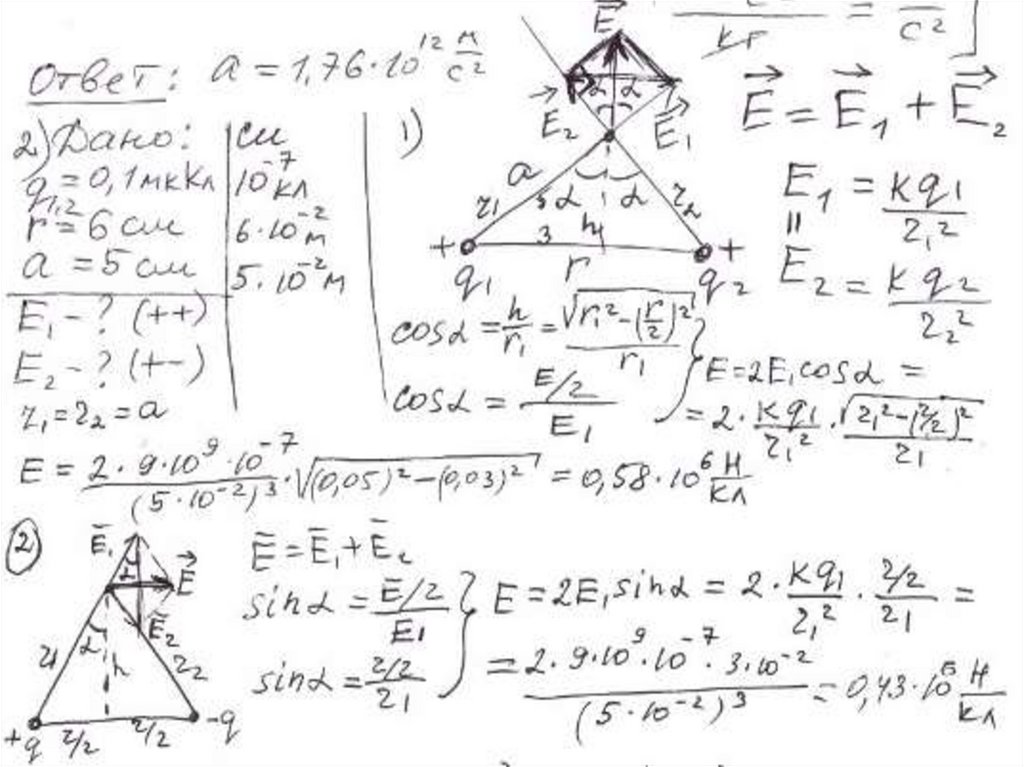 кг = с²
Ответ: a = 1,76·10¹² м/с²
2) Дано:
си
q₁,₂ = 0,1 мкКл
10⁻⁷ кл
r = 6 см
6·10⁻² м
a = 5 см
5·10⁻² м
E₁ - ? (++)
E₂ - ? (+-)
r₁ = r₂ = a
1)
E⃗
α α
E⃗₂ E⃗₁
a
5 α α
r₁ r₂
+ 3 h +
q₁ r q₂
E⃗ = E⃗₁ + E⃗₂
E₁ = kq₁/r₁²
"
E₂ = kq₂/r₂²
cosα = h/r₁ = √(r₁² - (r/2)²)/r₁
cosα = (E/2)/E₁
} E = 2E₁cosα =
= 2·kq₁/r₁² · √(r₁² - (r/2)²)/r₁
E = 2·9·10⁹·10⁻⁷/(5·10⁻²)³ · √((0,05)² - (0,03)²) = 0,58·10⁶ Н/Кл
2
E̅₁
α
E⃗
E̅₂
r₁ α h r₂
+q r/2 r/2 -q
E̅ = E̅₁ + E̅₂
sinα = (E/2)/E₁
sinα = (r/2)/r₁
} E = 2E₁sinα = 2·kq₁/r₁² · (r/2)/r₁ =
= 2·9·10⁹·10⁻⁷·3·10⁻²/(5·10⁻²)³ = 0,43·10⁶ Н/Кл